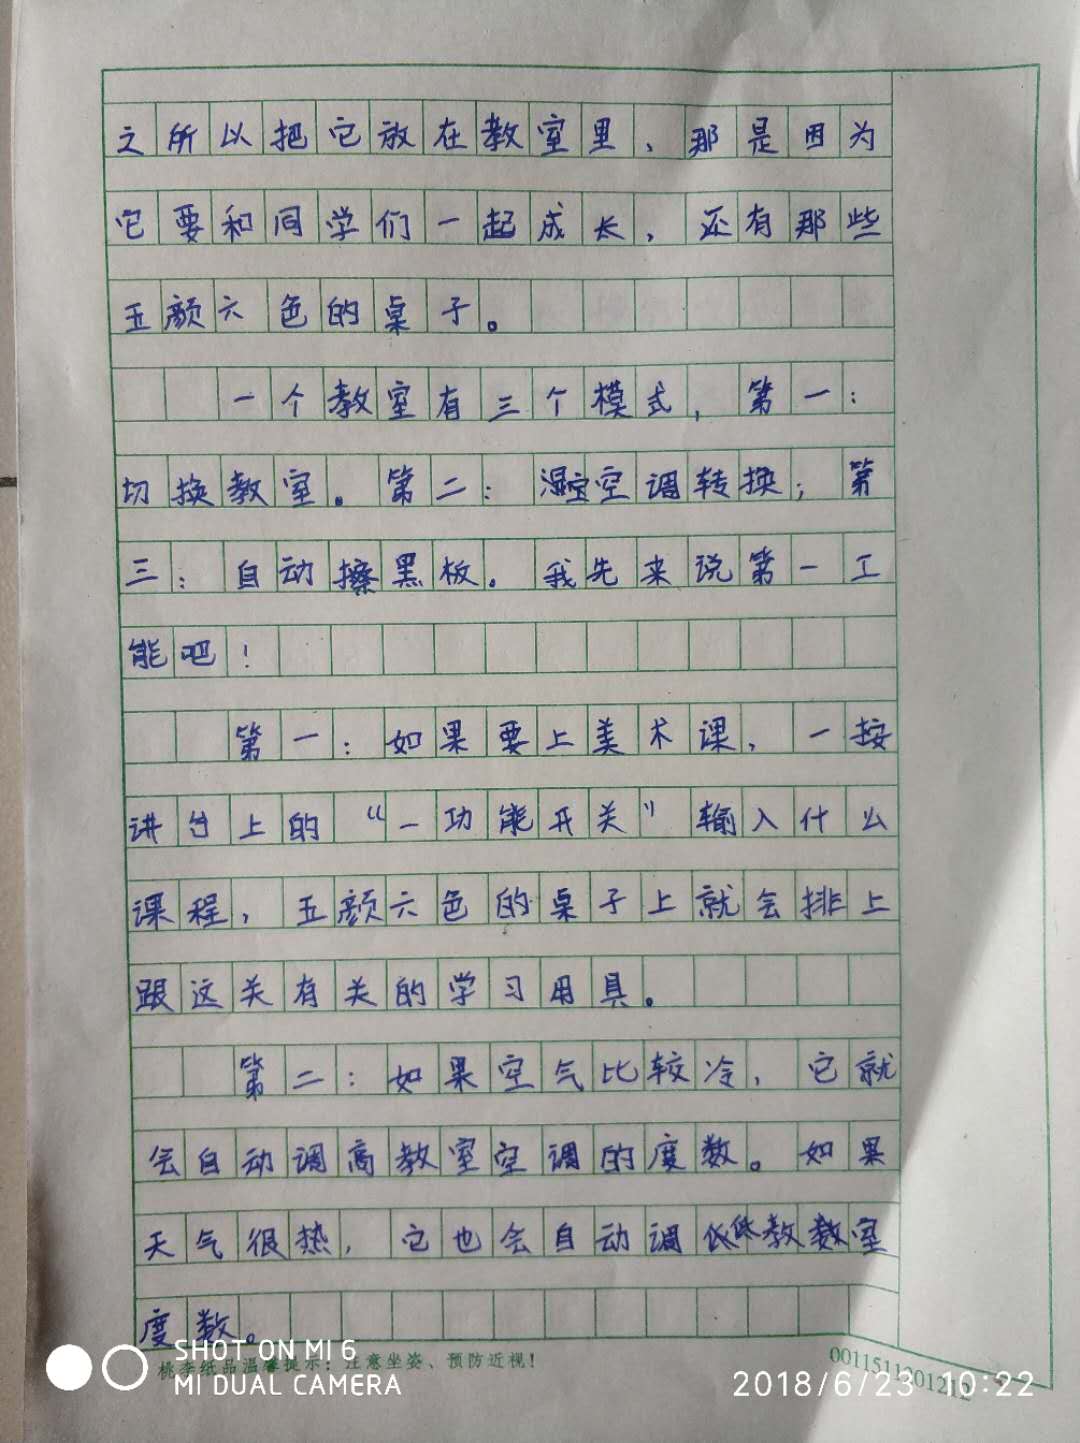 之所以把它放在教室里，那是因为
它要和同学们一起成长，还有那些
五颜六色的桌子。
一个教室有三个模式，第一：
切换教室。第二：湿空空调转换；第
三：自动擦黑板。我先来说第一工
能吧！
第一：如果要上美术课，一按
讲台上的“一功能开关”输入什么
课程，五颜六色的桌子上就会排上
跟这关有关的学习用具。
第二：如果空气比较冷，它就
会自动调高教室空调的度数。如果
天气很热，它也会自动调低教室
度数。
桃李纸品温馨提示：注意坐姿、预防近视！
0011511201212
SHOT ON MI 6
MI DUAL CAMERA
2018/6/23 10:22